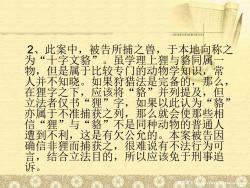 2、此案中，被告所捕之兽，于本地向称之
为“十字文貉”。虽学理上狸与貉同属一
物，但是属于比较专门的动物学知识，常
人并不知晓。如果狩猎法是完备的，那么，
在狸字之下，应该将“貉”并列提及，但
立法者仅书“狸”字，如果以此认为“貉”
亦属于不准捕获之列，那么就会使那些相
信“狸”与“貉”不是同种动物的普通人
遭到不利，这是有欠公允的。本案被告因
确信非狸而捕获之，很难说有不法行为可
言，结合立法目的，所以应该免于刑事追
诉。